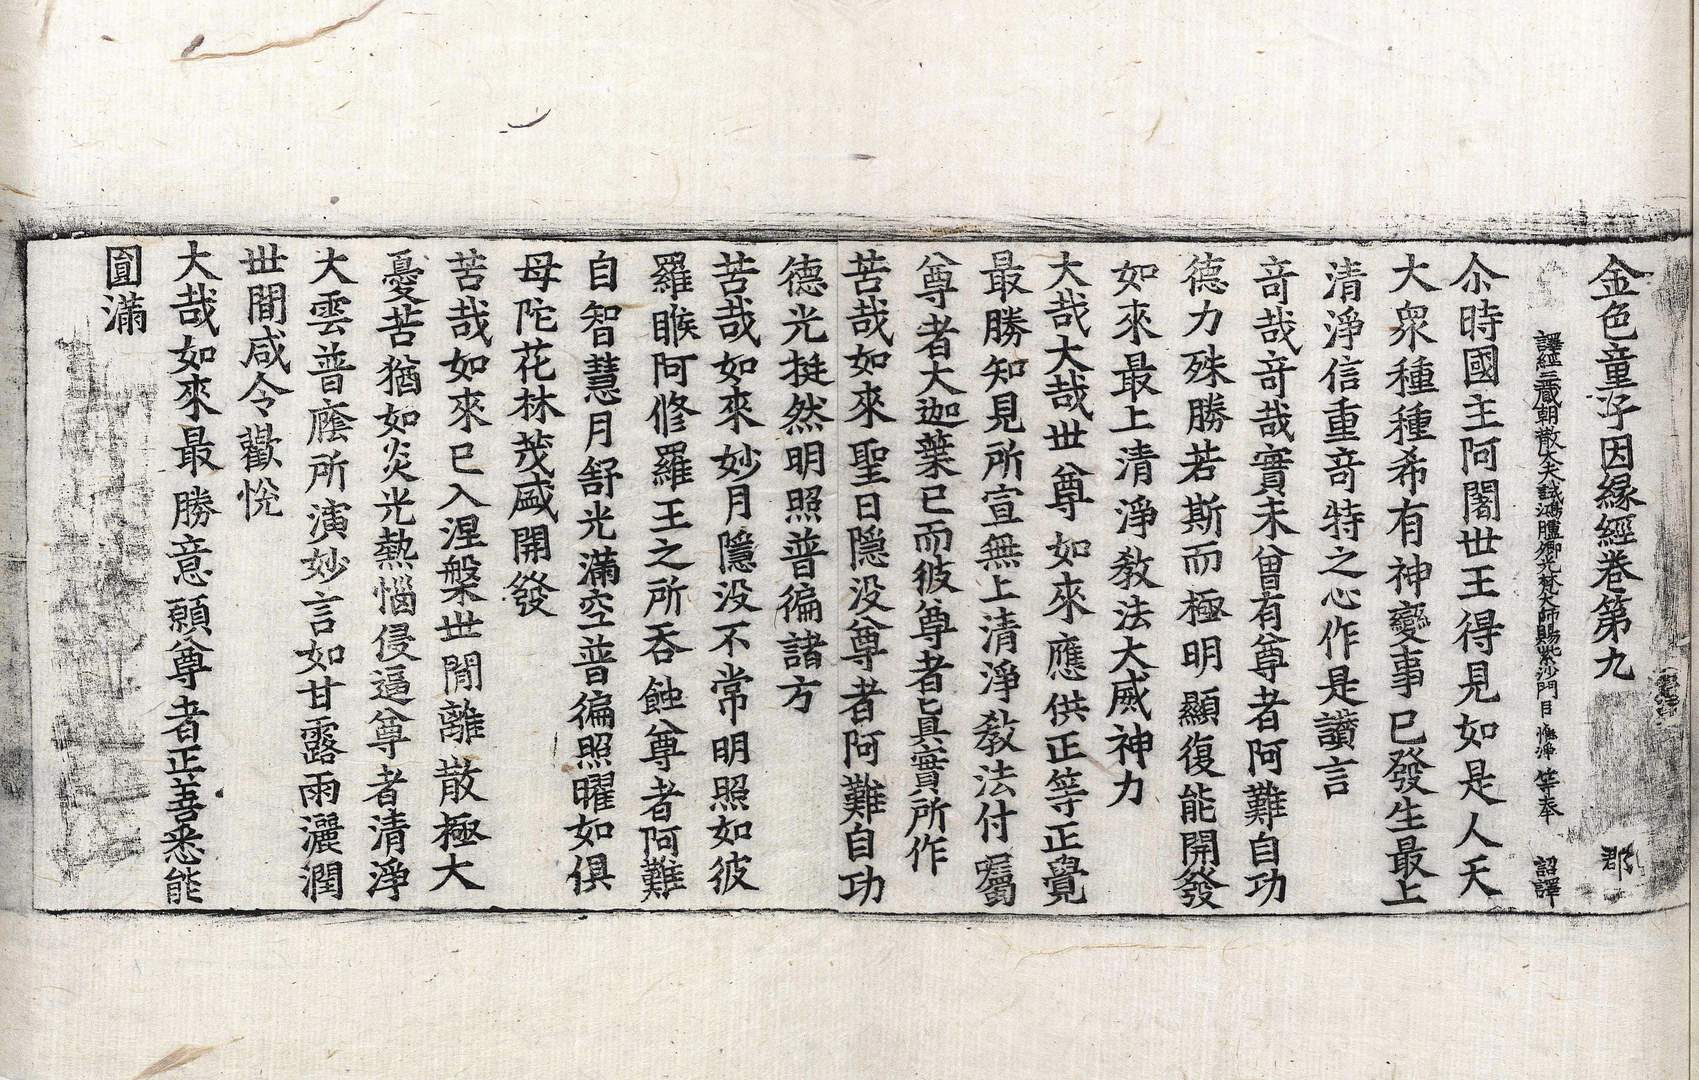 金色童子因縁經卷第九 郡
譯經三藏朝散大夫試鴻臚卿光梵大師賜紫沙門臣惟淨等奉 詔譯
尒時國主阿闍世王得見如是人天
大衆種種希有神變事已發生最上
清淨信重竒特之心作是讃言
竒哉竒哉實未曾有尊者阿難自功
德力殊勝若斯而極明顯復能開發
如來最上清淨教法大威神力
大哉大哉世尊如來應供正等正覺
最勝知見所宣無上清淨教法付囑
尊者大迦葉已而彼尊者已具實所作
苦哉如來聖日隱没尊者阿難自功
德光挺然明照普徧諸方
苦哉如來妙月隱没不常明照如彼
羅睺阿修羅王之所吞蝕尊者阿難
自智慧月舒光滿空普徧照曜如俱
母陀花林茂盛開發
苦哉如來已入涅槃世間離散極大
憂苦猶如炎光熱惱侵逼尊者清淨
大雲普廕所演妙言如甘露雨灑潤
世間咸令歡悅
大哉如來最勝意願尊者正善悉能
圓滿